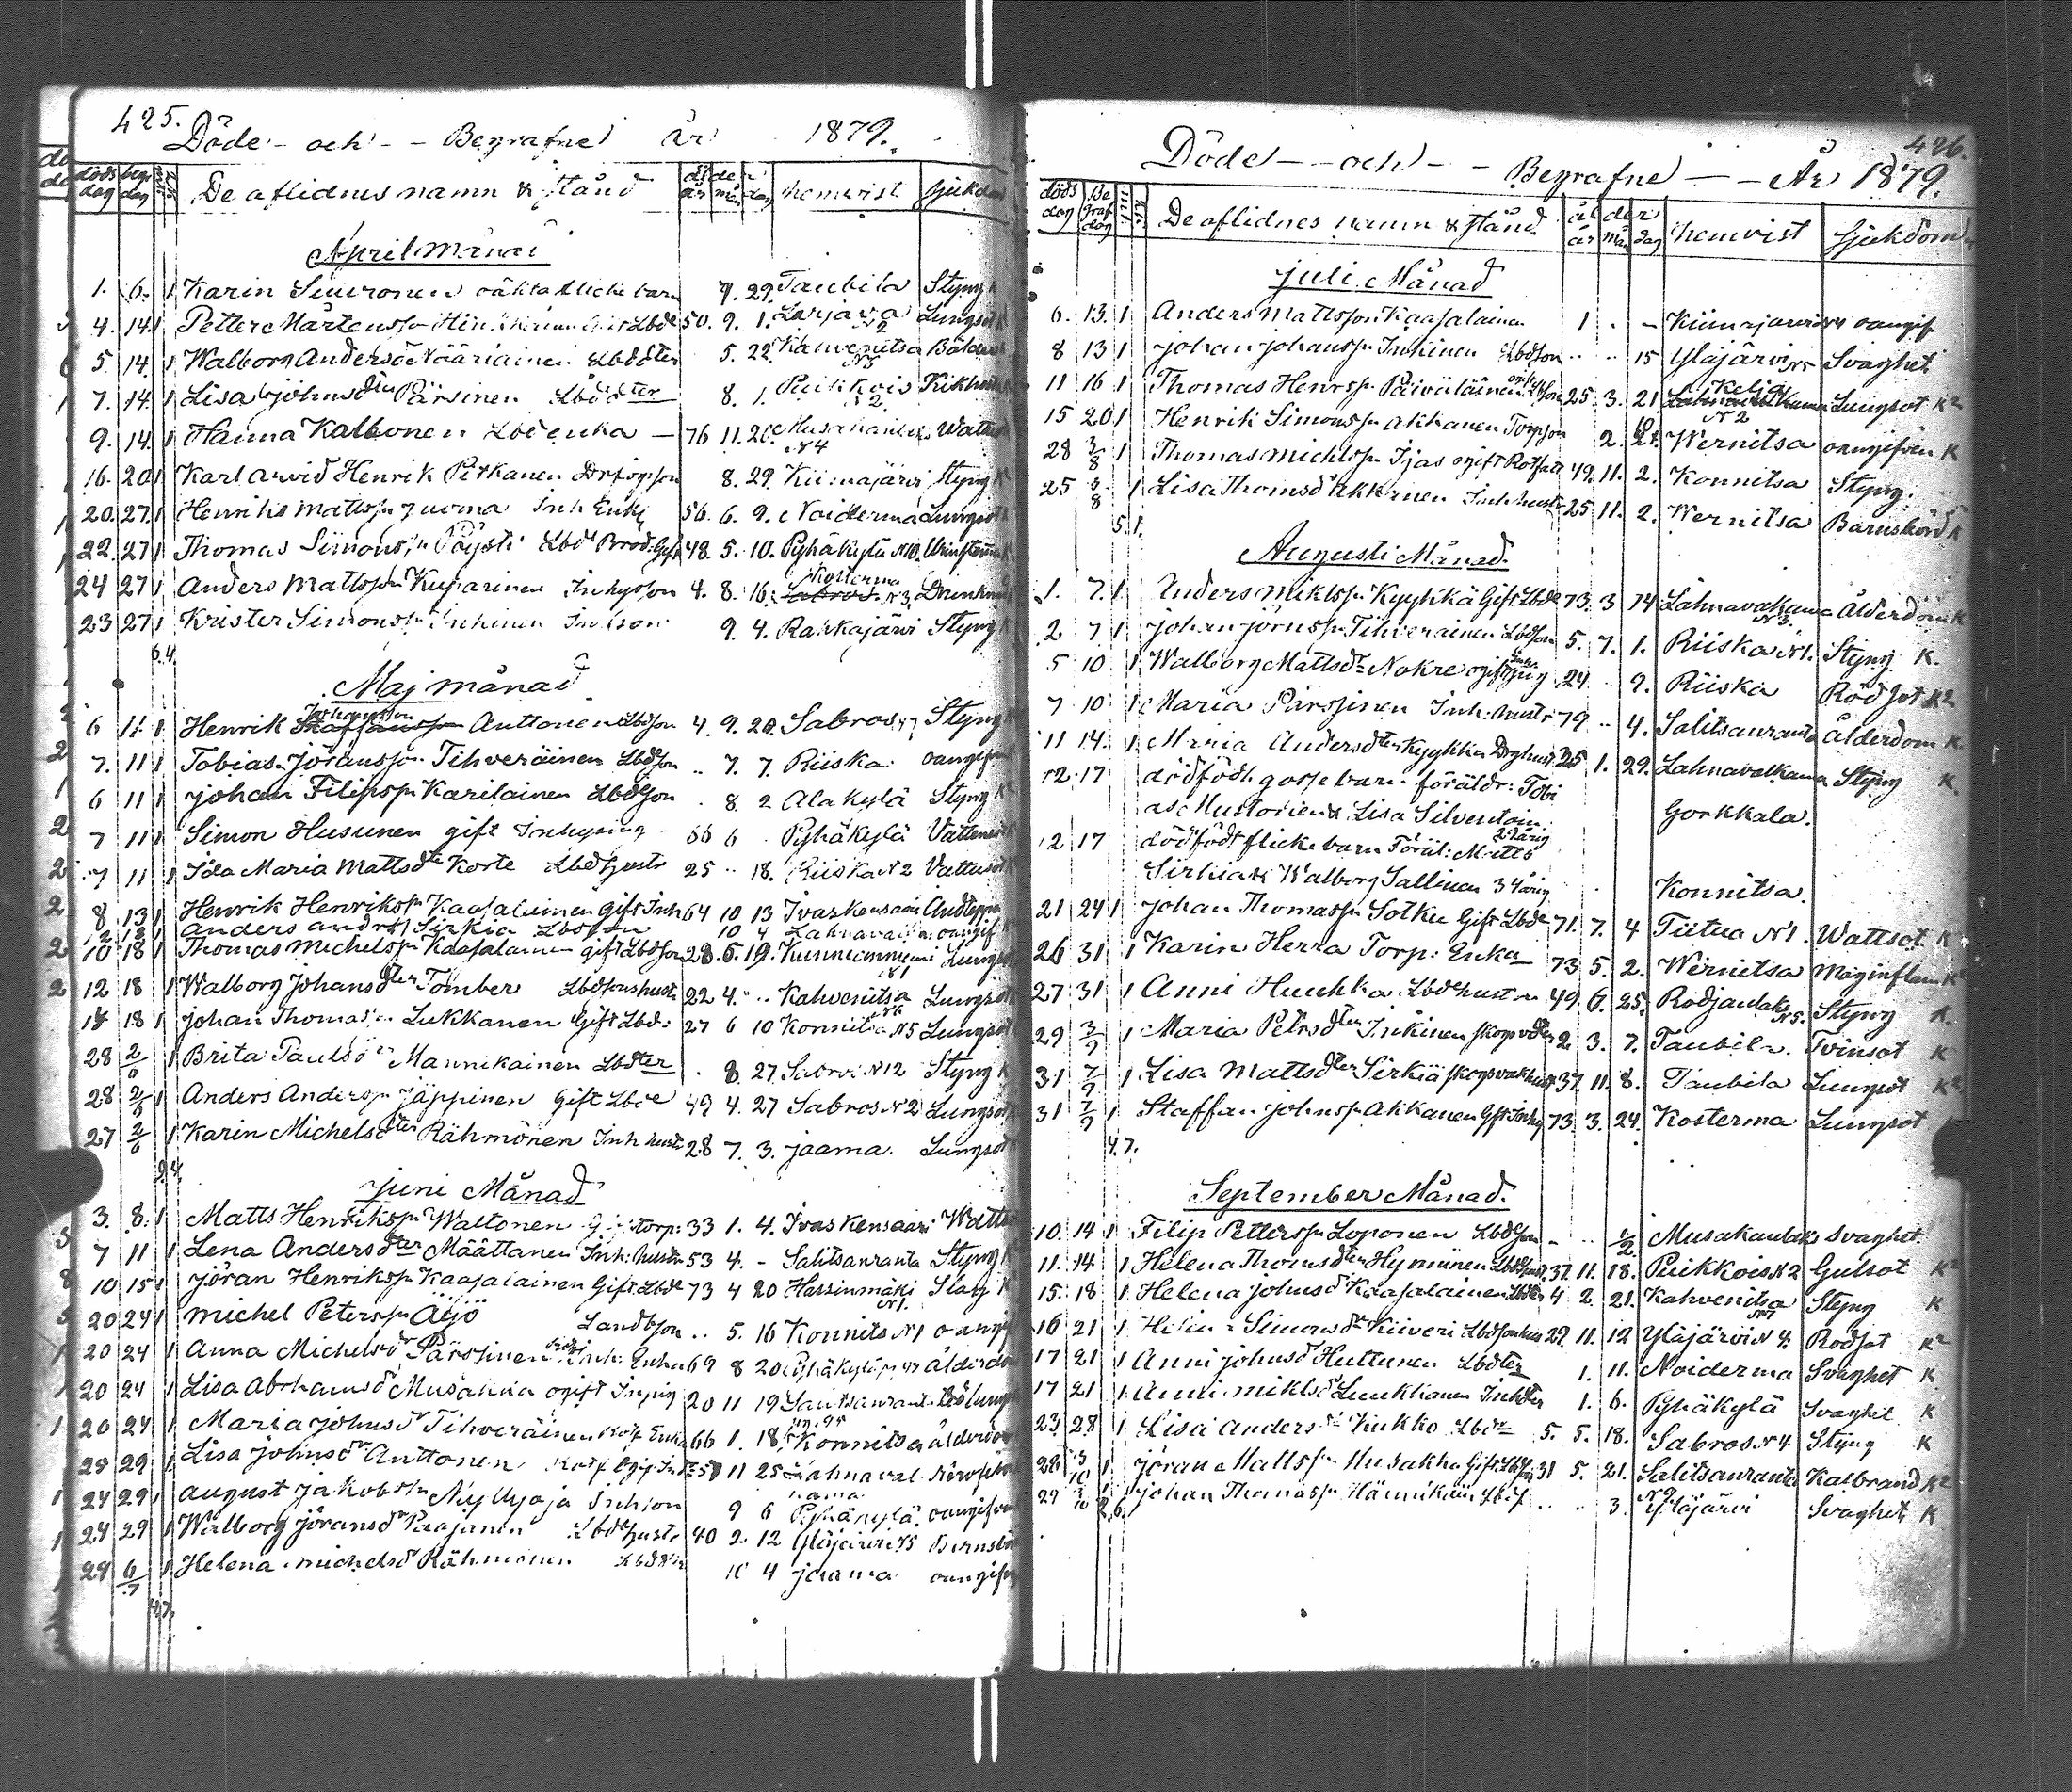 425.
Döde - och - - Begrafne år 1879.
döds dag begr dag De aflidnes namn & stånd ålder år mån dag hemvist sjukdom
April Månad
1. 6. 1 Karin Suuronen oäkta flicke barn 9. 29. Taubila Styng
4. 14. 1 Petter Mårtensson Gift Lbde 50. 9. 1. Larjava N2 Lungsot
5 14. 1 Walborg Andersd Nääriäinen Lbddter 5. 22. Kahvenitsa N5
7. 14. 1 Lisa Johnsdtr Pärsinen Lbddter 8. 1. Puikkois N2. Kikhosta
9. 14. 1 Hanna Kalbonen Lbdenka — 76 11. 26. Musakanlaks N4 Watt
16. 20 1 Karl Arvid Henrik Pitkänen son 8. 29. Kiimajärvi Styng K
20. 27. 1 Henriks Mattss Juoma Inh Enk 56. 6. 9. Noiderma Lungsot
22. 27 1 Thomas Simonss Pöysti Lbd Brod. Gift 48. 5. 10. Pyhäkylä N10.
24 27 1 Anders Mattss Kuparinen Inhysson 4. 8. 16. Kosterma N3. Drunkn
23 27 1 Krister Simonss Inkinen Inhson 9. 4. Rahkajärvi Styng
6.4.
Maj månad
6 11 1 Henrik Johansson Anttonen Lbdson 4. 9. 20. Sabros N7 Styng
7. 11 1 Tobias Jöranss Tihveräinen Lbdson .. 7. 7. Riiska oangifven
6 11 1 Johan Filipss Karilainen Lbdson . 8 2 Alakylä Styng K
7 11 1 Simon Husunen gift Inhysing 56 6 . Pyhäkylä Vattensot
7 11 1 Ida Maria Mattsdtr Korte Lbdhustr 25 .. 18. Riiska N2 Vattusot
8 13 1 Henrik Henrikss Kaasalainen Gift Inh 64 10 13 Ivaskensaari Andtäppa
12 13 1 Anders Andrss Sirkiä Lbdson 10 4 oangif
10 18 1 Thomas Michelss Kaasalainen gift Lbdson 28. 6. 19. Kunnianniemi N1 Lungsot
12 18 1 Walborg Johansdter Tomber Lbdsonshustr 22 4. .. Kahvenitsa N6 Lungsot
18 1 Johan Thomass Lukkanen Gift Lbd: 27 6 10 Konnitsa N5 Lungsot
28 2/6 1 Brita Paulsdr Mannikainen Lbdter . 8. 27. Sabros N12 Styng K
28 2/6 1 Anders Anderss Jäppinen Gift Lbde 49 4. 27 Sabros N2 Lungsot
27 2/6 1 Karin Michelsdter Rähmönen Inh hustr 28 7. 3. Jaama. Lungsot
9.4.
Juni Månad
3. 8. 1 Matts Henrikss Waltonen Gift torp: 33 1. 4. Ivaskensaari Watt
7 11 1 Lena Andersdter Määttänen Inh: hustru 53 4. - Salitsanranta Styng
10 15 1 Jöran Henrikss Kaasalainen Gift Lbde 73 4 20 Hassinmäki N1. Slag K
20 24 1 Michel Peterss Äijö Landbson .. 5. 16 Konnits N1 oangif
20 24 1 Anna Michelsd Pärssinen Inh: Enka 69 8 20 Pyhäkylä N7 ålderdom
20 24 1 Lisa Abrahamsd Musakka ogift Inhysing 20 11 19 Salitsanranta
20 24 1 Maria Johnsd Tihveräinen Torp Enka 66 1. 18. Konnitsa ålderdom
25 29 1 Lisa Johnsd Anttonen 11 25 Lahnavalkama
24 29 1 August Jakobss Myllyoja Inhson 9 6 Pyhäkylä. oangifven
24 29 1 Walborg Jöransd Paajanen Lbdehustr 40 2. 12 Yläjärvi N5 Barnsbörd
29 6/7 1 Helena Michelsd Rähmönen Lbddter 10 4 Jaama oangifv
4.7.
426.
Döde - - och - - Begrafne - - År 1879.
döds dag Be graf dag De aflidnes namn & stånd ålder år mån dag hemvist sjukdom
Juli Månad
6. 13. 1 Anders Mattsson Kaasalainen 1 . - Kiimajärvi N4 oangif
8 13 1 Johan Johanss Inkinen Lbdson .. .. 15 Yläjärvi N5 Svaghet
11 16 1 Thomas Henrss Päiväläinen ogift Lbdson 25. 3. 21 Kelja N2 Lungsot K2
15 20 1 Henrik Simonss Akkanen Torpson 2. 21. Wernitsa oangifven K
28 3/8 1 Thomas Michlss Ijas ogift Rotfatt 49. 11. 2. Konnitsa Styng.
25 3/8 1 Lisa Thomsd Akkanen Inh hustr 25 11. 2. Wernitsa Barnsbörd K
5.1.
Augusti Månad.
1. 7. 1 Anders Miklss Kyykkä Gift Lbde 73. 3 14 Lahnavalkama N3. Ålderdom K
2 7 1 Johan Jörnss Tihveräinen Lbdson 5. 7. 1. Riiska N1. Styng K.
5 10. 1 Walborg Mattsdr Nokre ogift Inhysing 24 .. 9. Riiska Röd Sot K2
7 10 1 Maria Pärssinen Inh: hustr 79 .. 4. Salitsanranta Ålderdom K
11 14. 1 Maria Andersdter Kyykkä Drghustr 25 1. 29. Lahnavalkama Styng K
12. 17 dödfödt gosse barn föräldr: Tobi
as Mustonen & Lisa Silventoin. Gorkkala.
12 17 dödfödt flicke barn Föräl: Matts 27årig
Sirkiä & Walborg Sallinen 34årig Konnitsa.
21 24 1 Johan Thomass Sotku Gift Lbde 71. 7. 4 Tiitua N1. Wattsot. K
26 31 1 Karin Herra Torp: Enka 73 5. 2. Wernitsa Maginflam K
27 31 1 Anni Huuhka Lbdhustru 49. 6. 25. Rodjanlaks N5. Styng K.
29 3/9 1 Maria Petrsdter Inkinen skogvdter 2. 3. 7. Taubila. Tvinsot K
31 7/9 1 Lisa Mattsdter Sirkiä skogsvakthust 37. 11. 8. Taubila Lungsot K2
31 7/9 1 Staffan Johnss Akkanen Gift Inhy 73. 3. 24. Kosterma Lungsot
4.7.
September Månad.
10. 14 1 Filip Petterss Loponen Lbdson - .. 1/2 Musakanlaks Svaghet.
11. 14 1 Helena Thomsdter Hyminen Lbdhust 37. 11. 18. Puikkois N2 Gulsot K2
15. 18 1 Helena Johnsd Kaasalainen Lbdter 4 2. 21. Kahvenitsa N7 Styng K
16 21 1 Helena Simonsdr Kiiveri Lbdsonhus 29. 11. 12 Yläjärvi N4. Rodsot K2
17 21 1 Anni Johnsd Huttunen Lbdter 1. 11. Noiderma Svaghet K
17 21 1 Anni Miklsd Luukkanen Inhdter 1. 6. Pyhäkylä Svaghet K
23 28 1 Lisa Andersdr Kukko Lbdr 5. 5. 18. Sabros N4. Styng K
28 5/10 1 Jöran Mattss Musakka Gift Lbdson 31 5. 21. Salitsanranta Kalbrand K2
29 5/10 Johan Thomass Hännikäin Lbds .. .. 3. Yläjärvi Svaghet K
2.6.